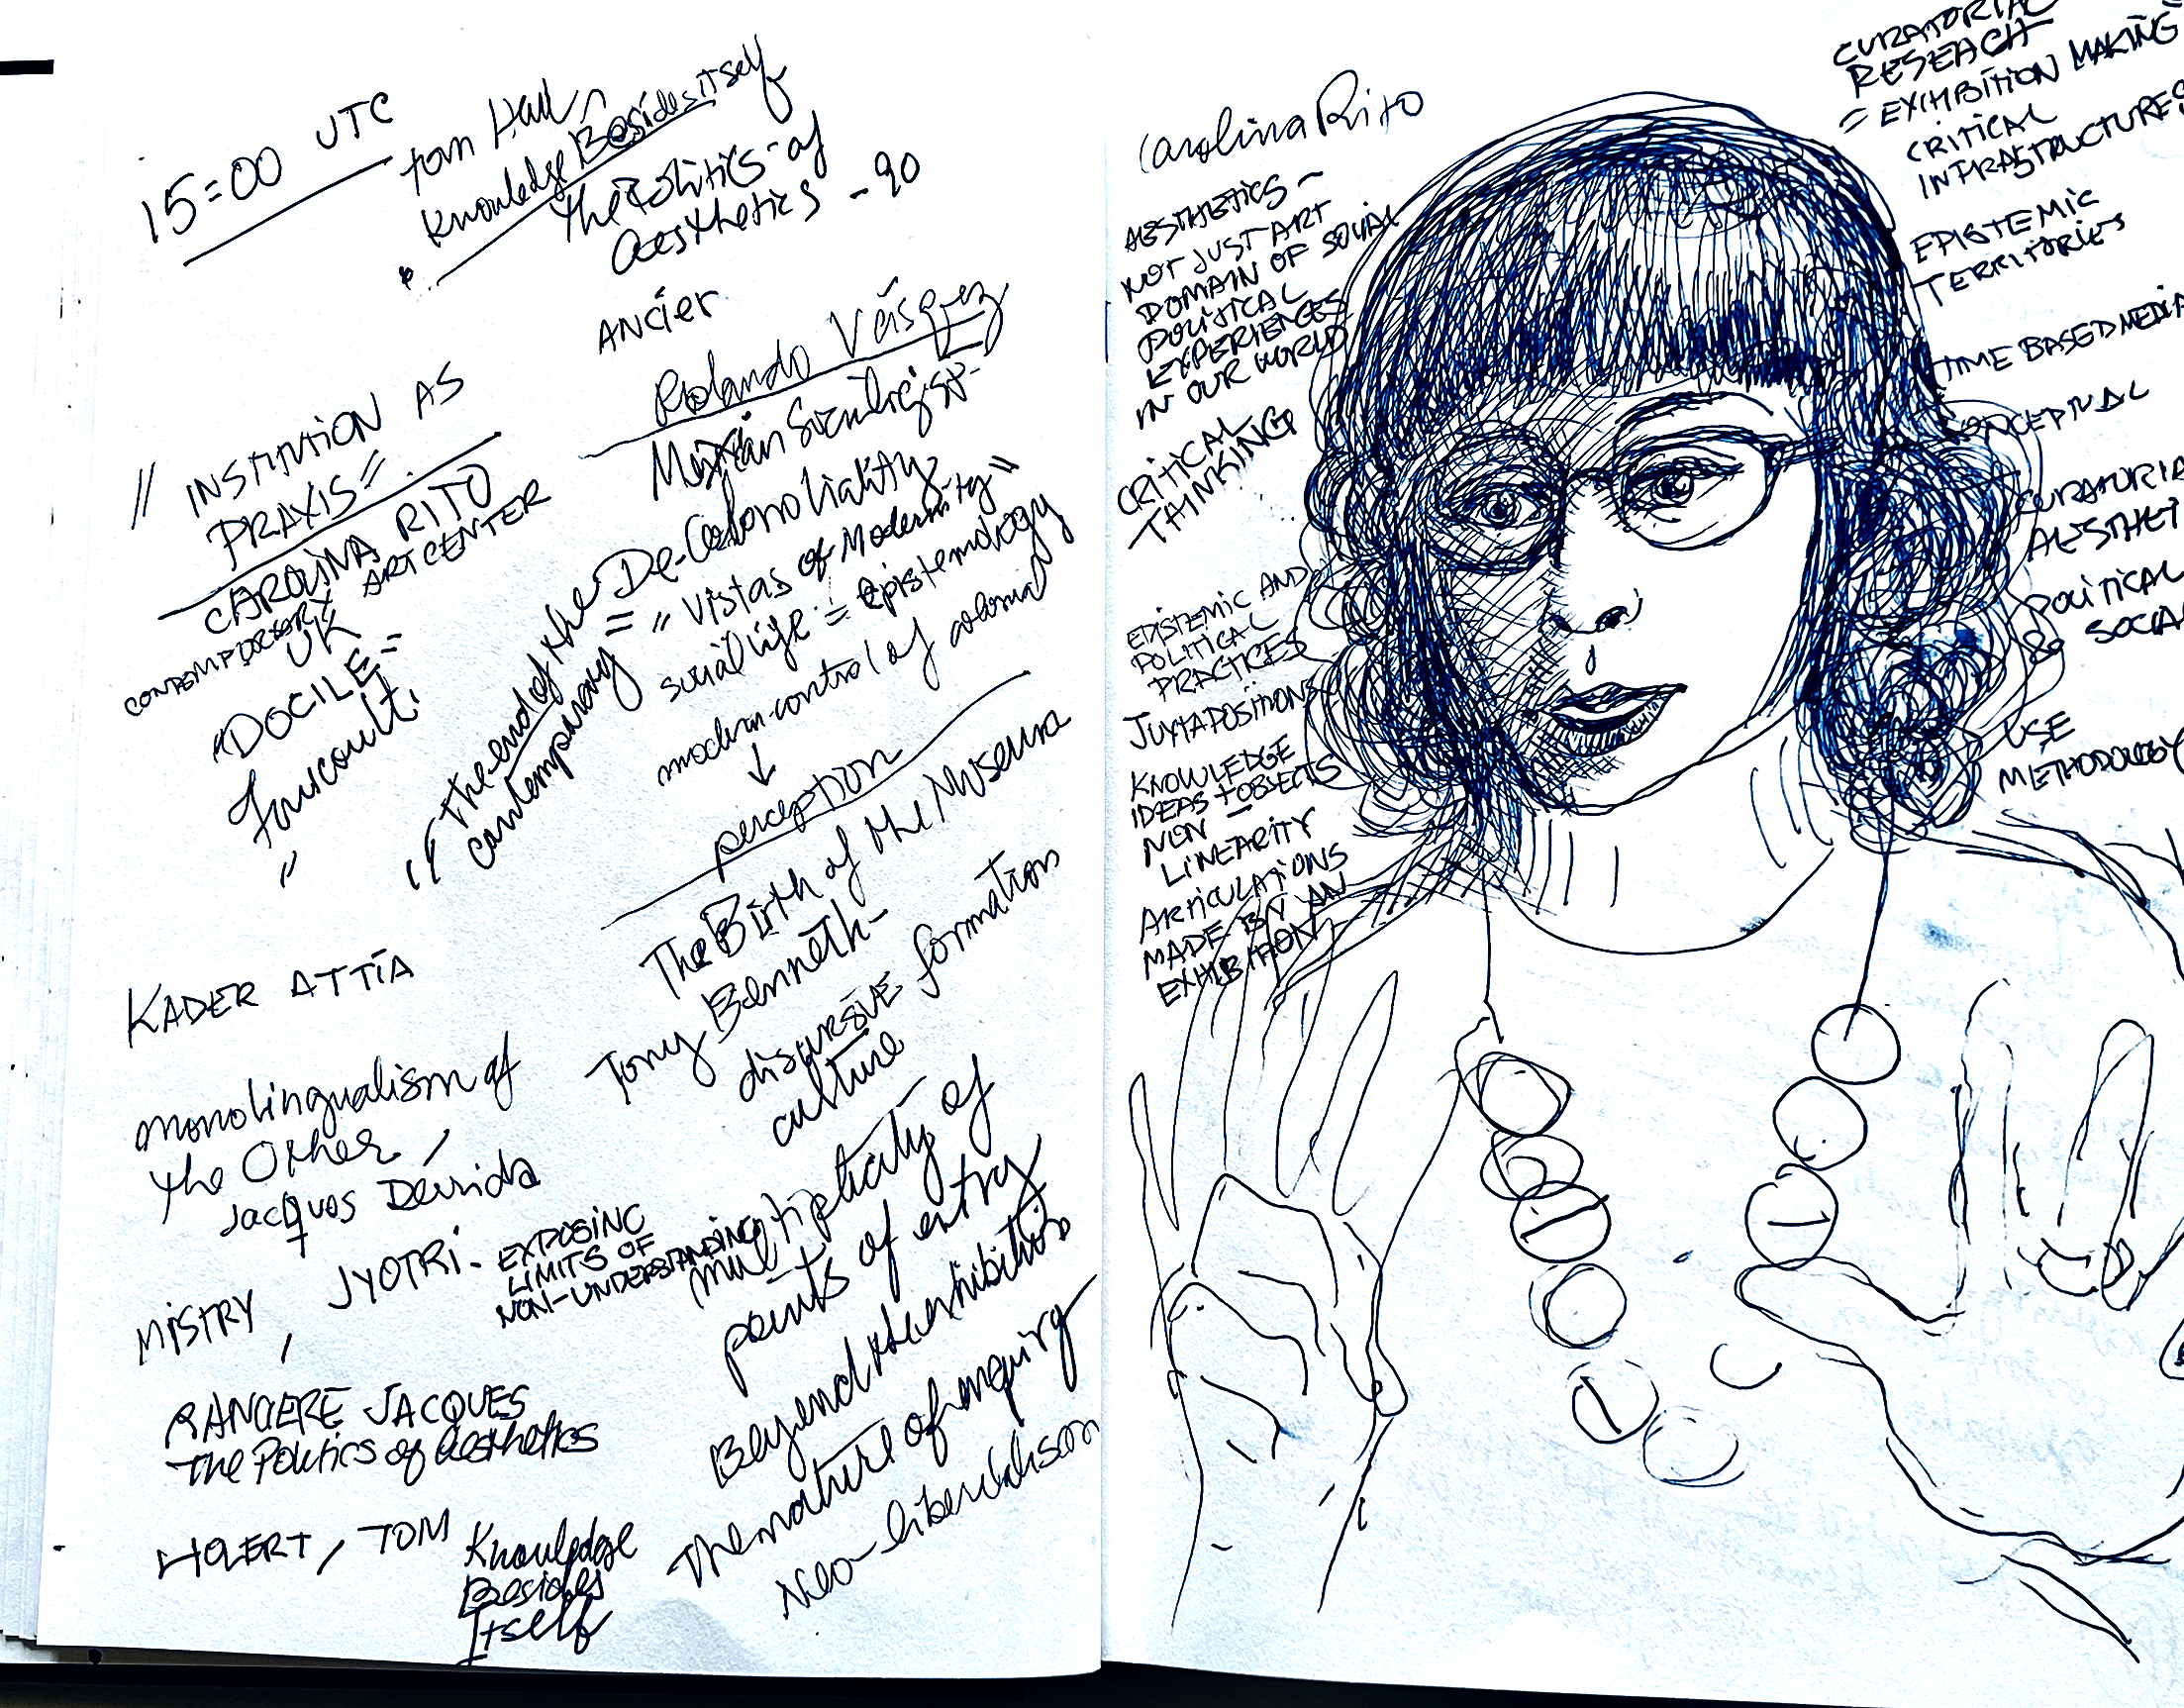 15=00 UTC
Tom Hall
Knowledge Besides itself
The Politics of
aesthetics - 90
ANCIER
Rolando Vásquez
Mexian Sociologist
" INSTITUTION AS
PRAXIS=
CAROLINA RITO
CONTEMPORARY ART CENTER
UK
"DOCILE=
" The end of the De-Colonoliality
contemporary = "Vistas of Modernity"
social life = epistemology
modern-control of
↓
perception
The Birth of the Museum
Tony Benneth-
discursive formation
culture
multiplicity of
points of entry
Beyond the exhibition
The nature of enquiry
Neo-liberalism
KADER ATTIA
monolingualism of
the Other,
Jacques Derrida
MISTRY, JYOTRI- EXPOSING
LIMITS OF
NON-UNDERSTANDING
RANCIERE JACQUES
The Politics of aesthetics
HOLERT, TOM Knowledge
Besides
Itself
Carolina Rito
AESTHETICS -
NOT JUST ART
DOMAIN OF SOCIAL
POLITICAL
EXPERIENCES
IN OUR WORLD
CRITICAL
THINKING
EPISTEMIC AND
POLITICAL
PRACTICES
JUXTAPOSITIONS
KNOWLEDGE
IDEAS + OBJECTS
NON -
LINEARITY
ARTICULATIONS
MADE BY AN
EXHIBITION
CURATORIAL
RESEACH
= EXIHBITION MAKING
CRITICAL
INFRASTRUCTURES
EPISTEMIC
TERRITORIES
TIME BASED MEDIA
CONCEPTUAL
CURATORIA
AESTHET
POLITICAL
& SOCIA
USE
METHODOLOGY